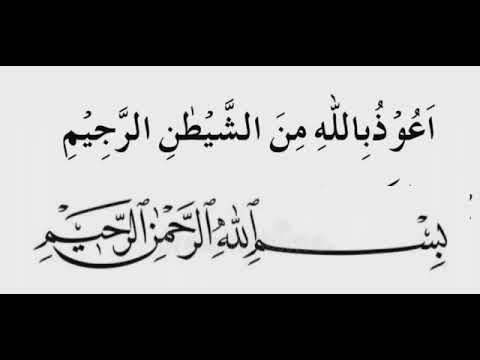 اَعُوْذُبِاللّٰهِ مِنَ الشَّيْطٰنِ الرَّجِيْمِ
بِسْمِ اللّٰهِ الرَّحْمٰنِ الرَّحِيْمِ